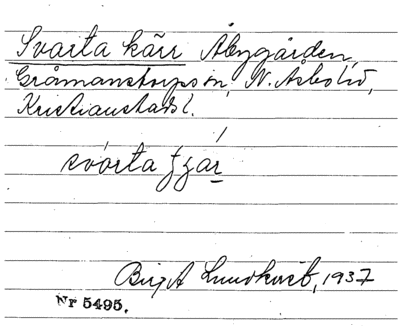 Svarta kärr Åbygården,
Gråmanstorps sn, N. Åsbo hd,
Kristianstads l.
svárta
Birgit Lundkvist, 1937
Nr 5495.